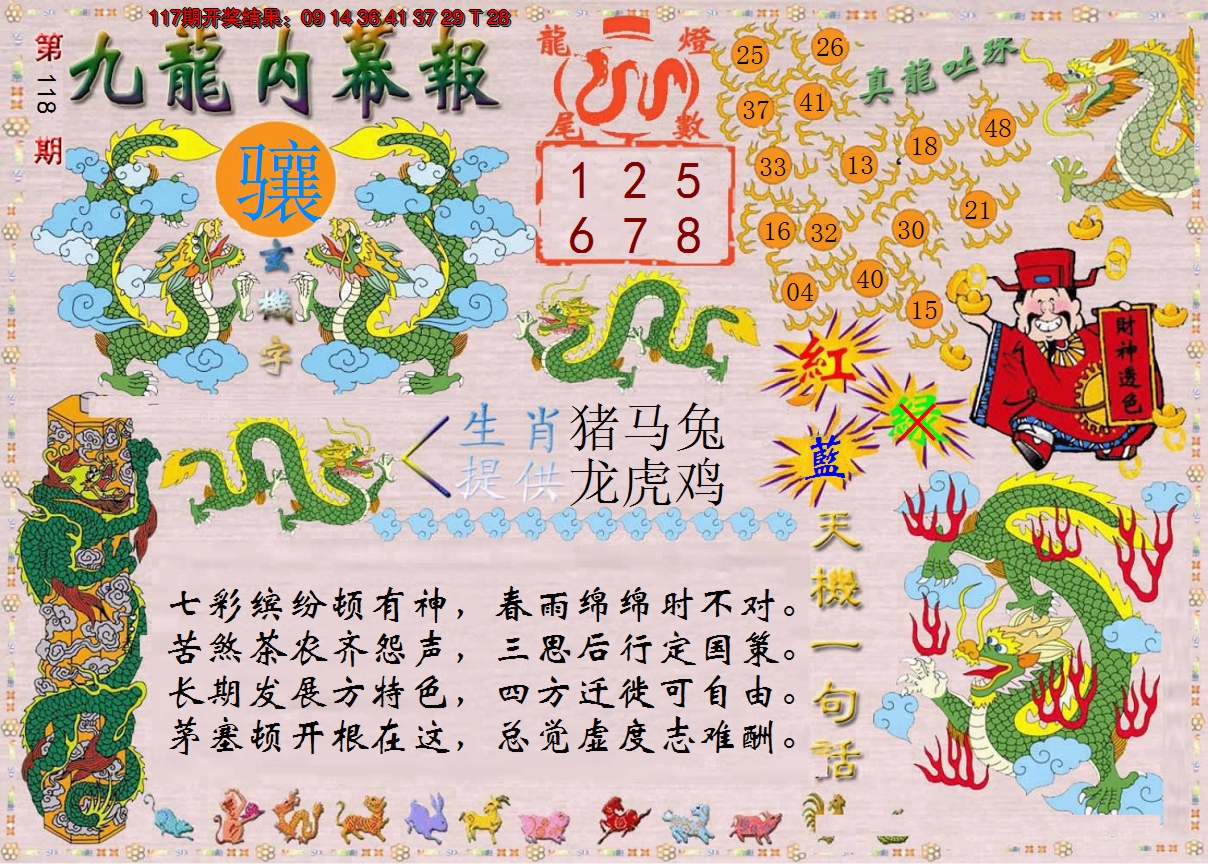 117期开奖结果：09 14 36 41 37 29 T 28
第118期
九龍内幕報
骧
玄機字
龍燈
尾數
1 2 5
6 7 8
真龍吐珠
25 26
37 41
33 13 18 48
16 32 30 21
04 40 15
財神透色
紅
绿
藍
生肖 猪马兔
提供 龙虎鸡
天機一句話
七彩缤纷顿有神，春雨绵绵时不对。
苦煞茶农齐怨声，三思后行定国策。
长期发展方特色，四方迁徙可自由。
茅塞顿开根在这，总觉虚度志难酬。